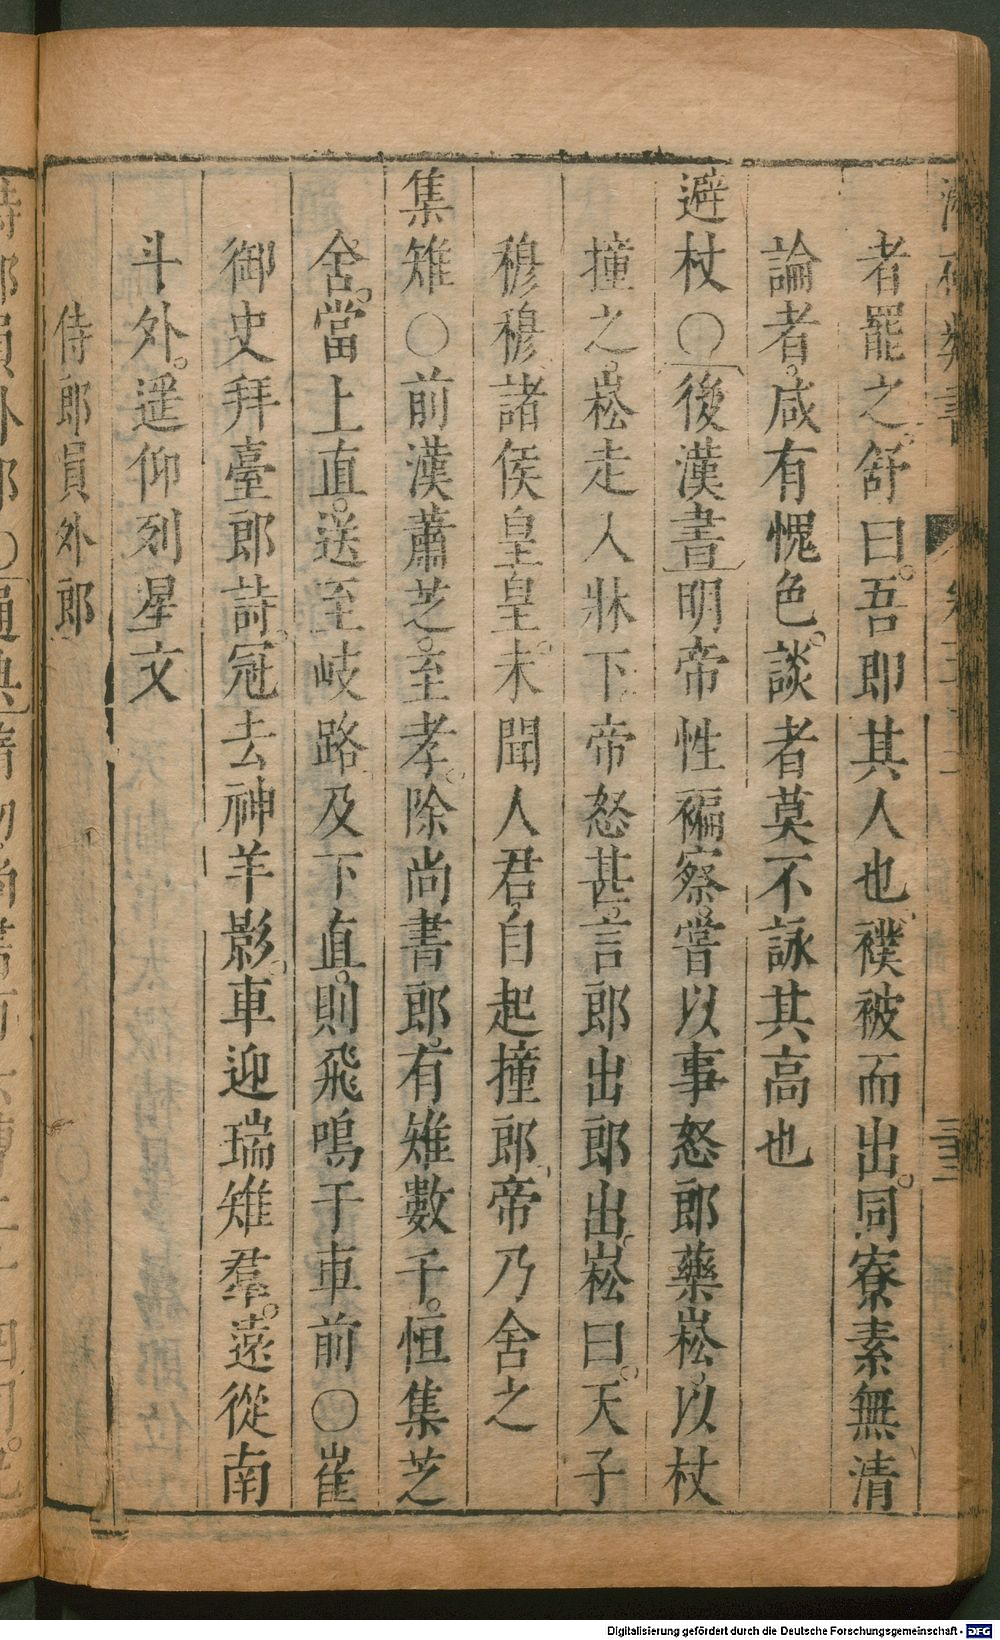 者罷之舒曰吾即其人也襆被而出同寮素無清
論者咸有愧色談者莫不詠其高也
避杖○後漢書明帝性褊察嘗以事怒郎藥崧以杖
撞之崧走入牀下帝怒甚言郎出郎出崧曰天子
穆穆諸侯皇皇未聞人君自起撞郎帝乃舍之
集雉○前漢蕭芝至孝除尚書郎有雉數千恒集芝
舍當上直送至岐路及下直則飛鳴于車前○崔
御史拜臺郎詩冠去神羊影車迎瑞雉羣遠從南
斗外遥仰列星文
侍郎員外郎
Digitalisierung gefördert durch die Deutsche Forschungsgemeinschaft - DFG